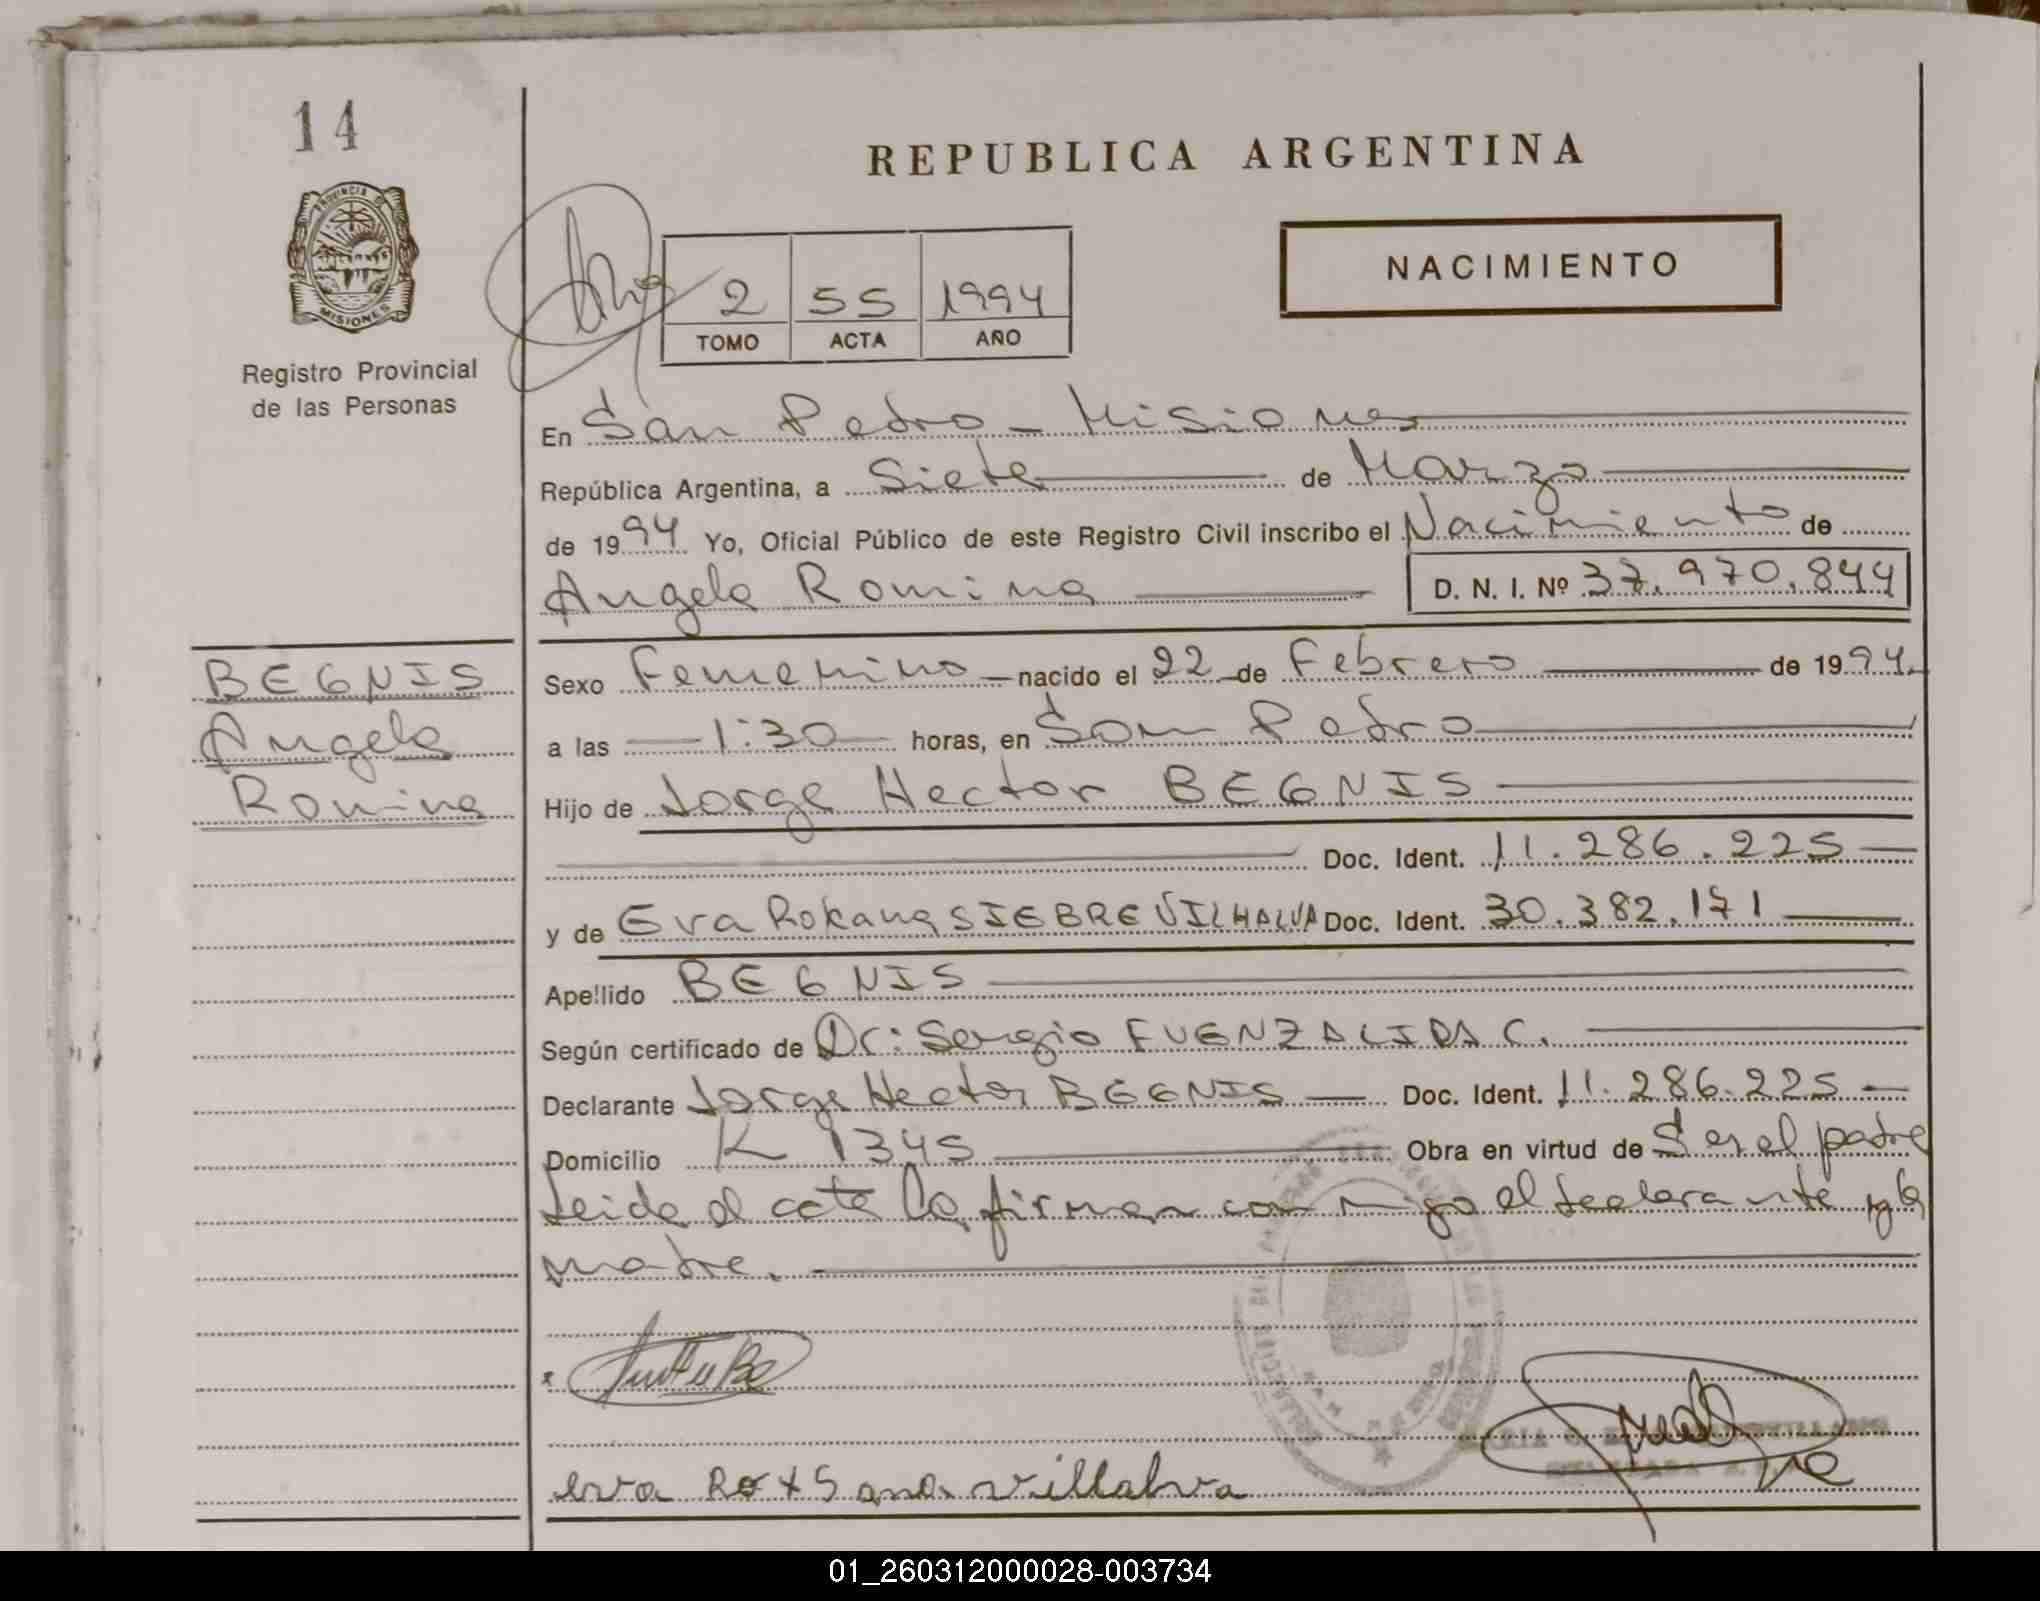 14
REPUBLICA ARGENTINA
PROVINCIA DE
MISIONES
NACIMIENTO
2 55 1994
TOMO ACTA AÑO
Registro Provincial
de las Personas
En San Pedro - Misiones
República Argentina, a Siete de Marzo
de 1994 Yo, Oficial Público de este Registro Civil inscribo el Nacimiento de
Angela Romina D. N. I. Nº 37.970.844
BEGNIS
Angela
Romina
Sexo Femenino nacido el 22 de Febrero de 1994.
a las 1:30 horas, en San Pedro
Hijo de Jorge Hector BEGNIS
Doc. Ident. 11.286.225
y de Eva Roxana SIEBRE VILHALVA Doc. Ident. 30.382.171
Apellido BEGNIS
Según certificado de Dr: Sergio FUENZALIDA C.
Declarante Jorge Hector BEGNIS Doc. Ident. 11.286.225
Domicilio K 1345 Obra en virtud de Ser el padre
Leida el acta la firman conmigo el declarante y la
madre.
eva Roxsana villalva
01_260312000028-003734